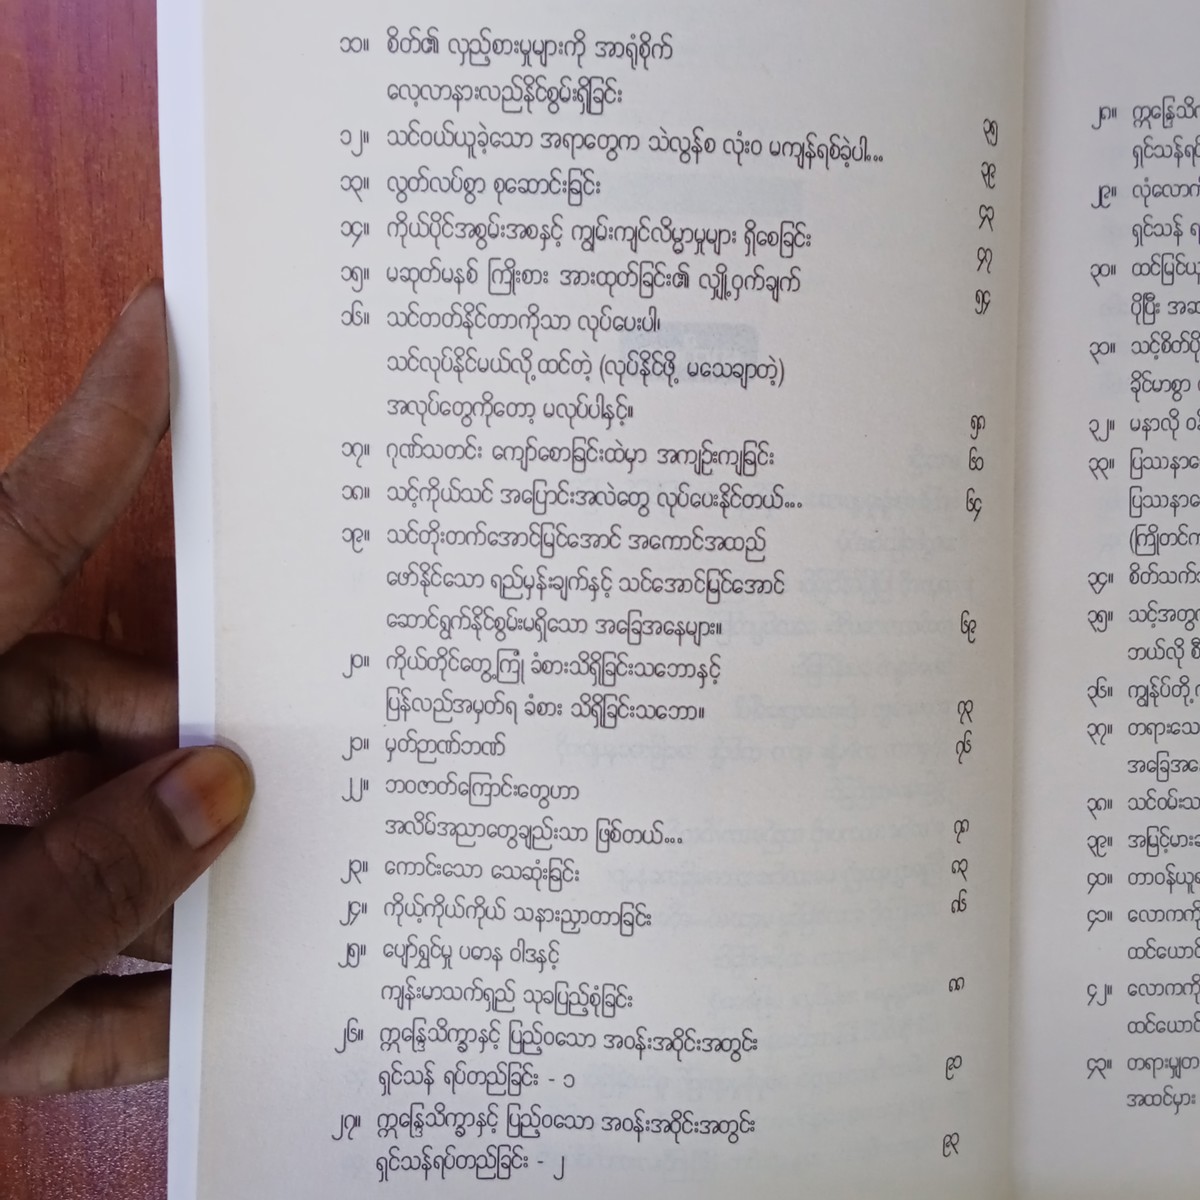 ၁၁။ စိတ်၏ လှည့်စားမှုများကို အာရုံစိုက်
လေ့လာနားလည်နိုင်စွမ်းရှိခြင်း ၃၅
၁၂။ သင်ဝယ်ယူခဲ့သော အရာတွေက သဲလွန်စ လုံးဝ မကျန်ရစ်ခဲ့ပါ... ၃၉
၁၃။ လွတ်လပ်စွာ စုဆောင်းခြင်း ၄၃
၁၄။ ကိုယ်ပိုင်အစွမ်းအစနှင့် ကျွမ်းကျင်လိမ္မာမှုများ ရှိစေခြင်း ၄၇
၁၅။ မဆုတ်မနစ် ကြိုးစား အားထုတ်ခြင်း၏ လျှို့ဝှက်ချက် ၅၄
၁၆။ သင်တတ်နိုင်တာကိုသာ လုပ်ပေးပါ၊
သင်လုပ်နိုင်မယ်လို့ ထင်တဲ့ (လုပ်နိုင်ဖို့ မသေချာတဲ့)
အလုပ်တွေကိုတော့ မလုပ်ပါနှင့်။ ၅၈
၁၇။ ဂုဏ်သတင်း ကျော်စောခြင်းထဲမှာ အကျဉ်းကျခြင်း ၆၁
၁၈။ သင့်ကိုယ်သင် အပြောင်းအလဲတွေ လုပ်ပေးနိုင်တယ်... ၆၄
၁၉။ သင်တိုးတက်အောင်မြင်အောင် အကောင်အထည်
ဖော်နိုင်သော ရည်မှန်းချက်နှင့် သင်အောင်မြင်အောင်
ဆောင်ရွက်နိုင်စွမ်းမရှိသော အခြေအနေများ။ ၆၉
၂၀။ ကိုယ်တိုင်တွေ့ကြုံ ခံစားသိရှိခြင်းသဘောနှင့်
ပြန်လည်အမှတ်ရ ခံစား သိရှိခြင်းသဘော။ ၇၃
၂၁။ မှတ်ဉာဏ်ဘဏ် ၇၆
၂၂။ ဘဝဇာတ်ကြောင်းတွေဟာ
အလိမ်အညာတွေချည်းသာ ဖြစ်တယ်... ၇၈
၂၃။ ကောင်းသော သေဆုံးခြင်း ၈၃
၂၄။ ကိုယ့်ကိုယ်ကိုယ် သနားညှာတာခြင်း ၈၆
၂၅။ ပျော်ရွှင်မှု ပဓာန ဝါဒနှင့်
ကျန်းမာသက်ရှည် သုခပြည့်စုံခြင်း ၈၈
၂၆။ ဣန္ဒြေသိက္ခာနှင့် ပြည့်ဝသော အဝန်းအဝိုင်းအတွင်း
ရှင်သန် ရပ်တည်ခြင်း - ၁ ၉၁
၂၇။ ဣန္ဒြေသိက္ခာနှင့် ပြည့်ဝသော အဝန်းအဝိုင်းအတွင်း
ရှင်သန်ရပ်တည်ခြင်း - ၂ ၉၃
၂၈။
၂၉။
၃၀။
ပိုပြီး
၃၁။
ခိုင်မာစွာ
၃၂။ မနာလို
၃၃။
၃၄။
၃၅။
ဘယ်လို
၃၆။
၃၇။
၃၈။
၃၉။
၄၀။
၄၁။
၄၂။
၄၃။
အထင်မှား